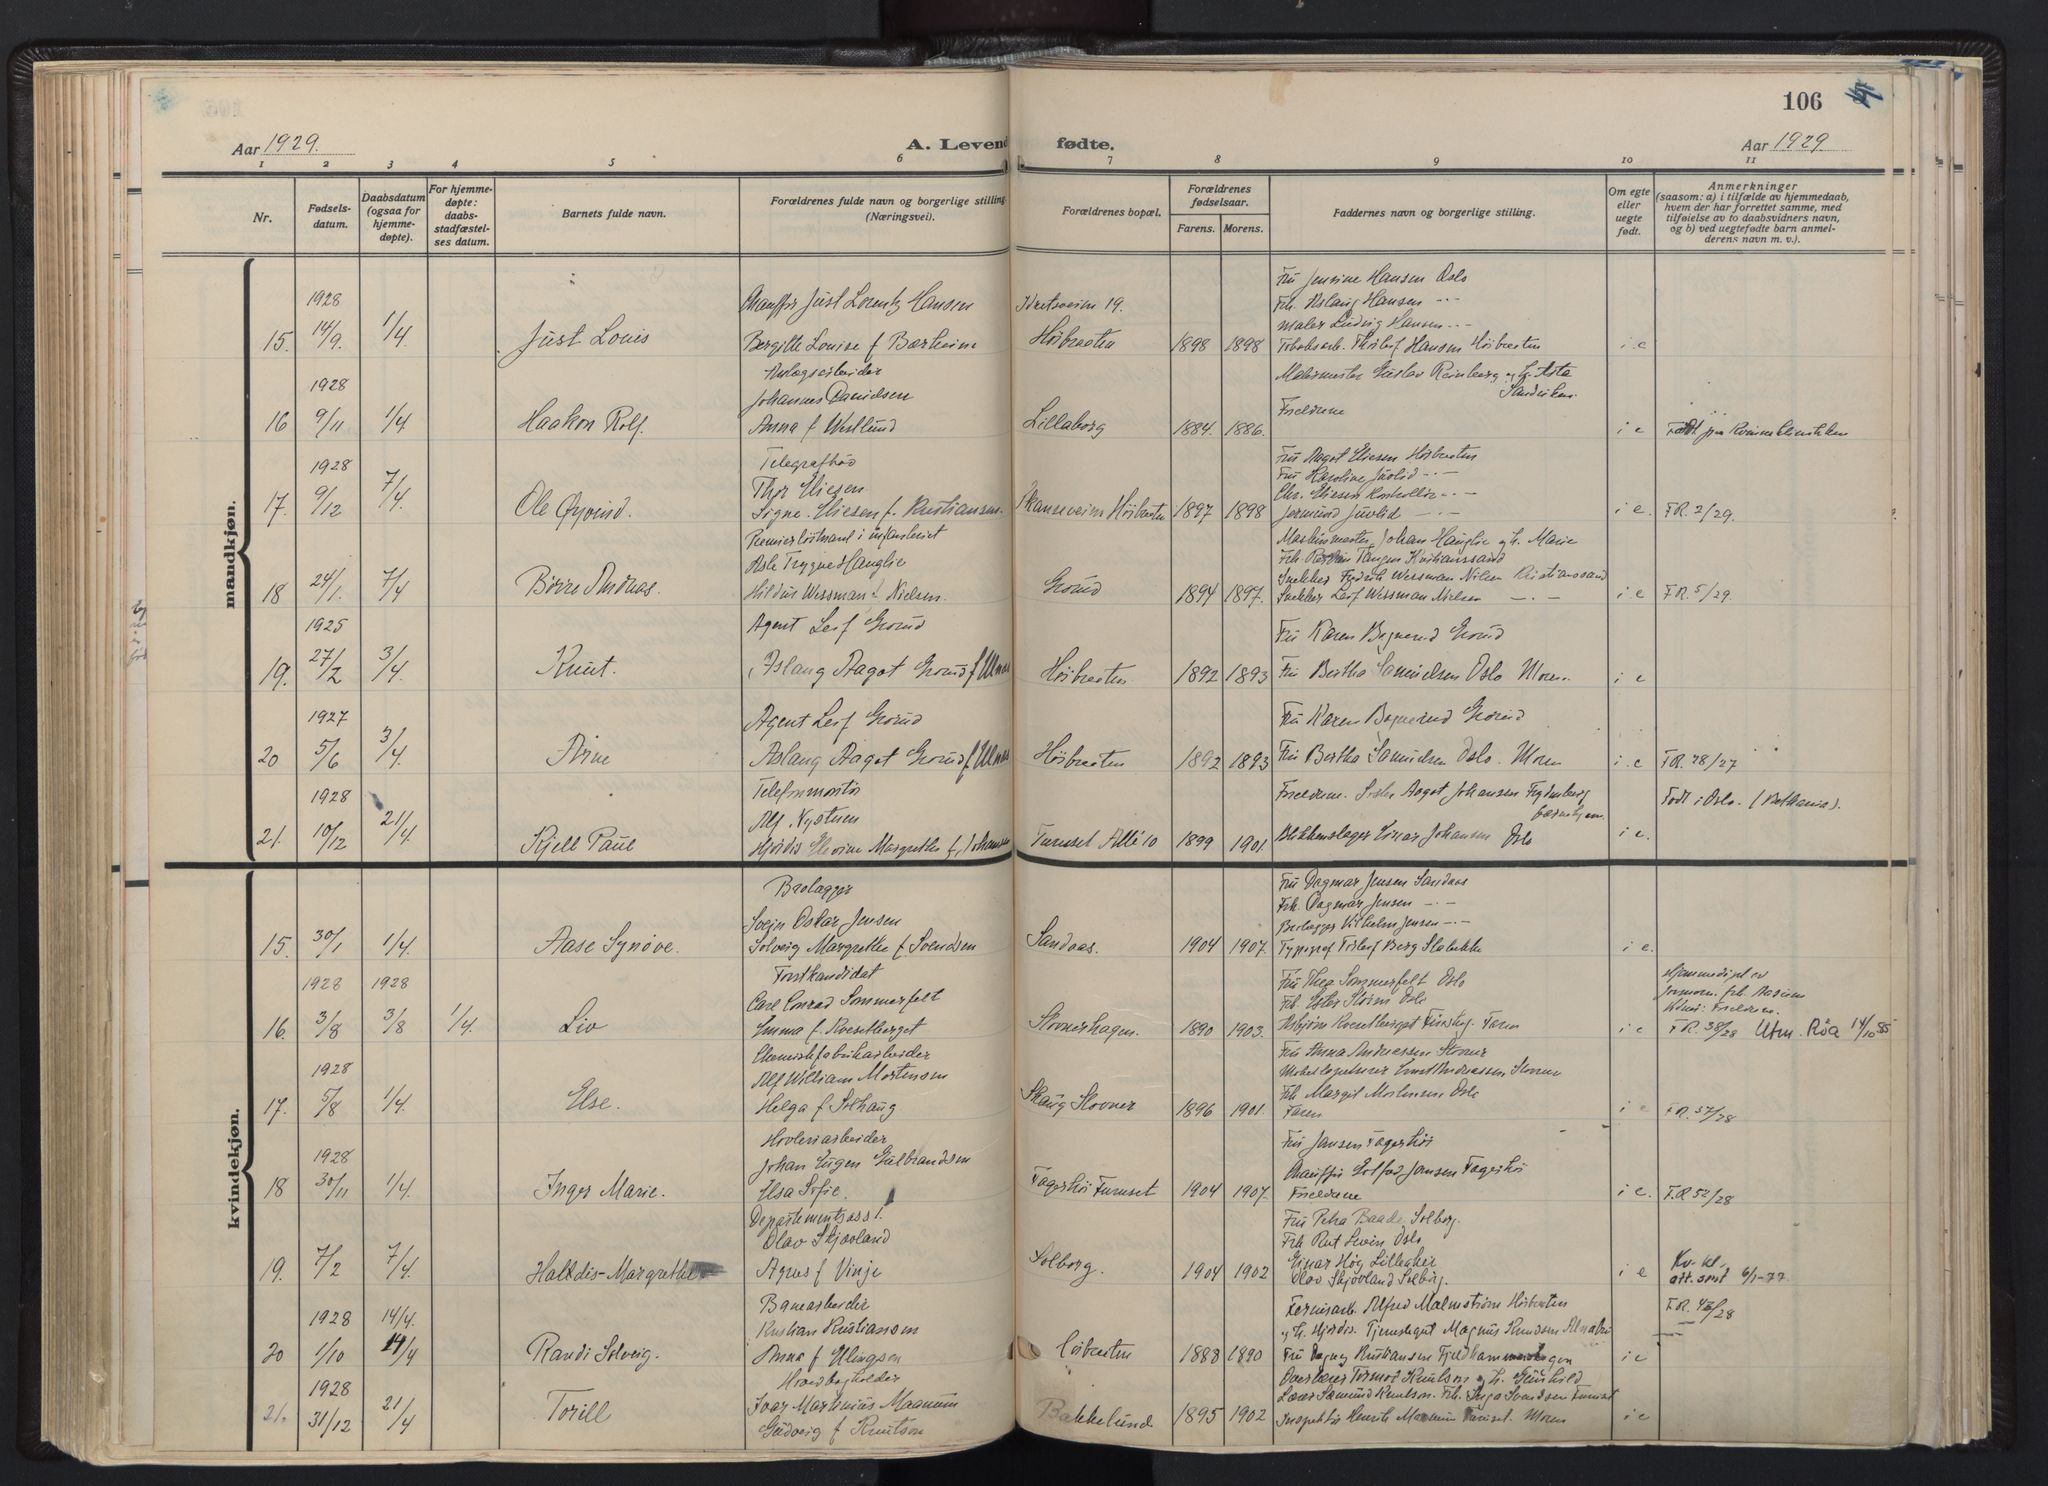 106
Aar 1929.
A. Levende fødte.
Aar 1929
1 2 3 4 5 6 7 8 9 10 11
Nr.
Fødsels-
datum.
Daabsdatum
(ogsaa for
hjemme-
døpte).
For hjemme-
døpte:
daabs-
stadfæstel-
ses datum.
Barnets fulde navn.
Forældrenes fulde navn og borgerlige stilling
(Næringsvei).
Forældrenes bopæl.
Forældrenes
fødselsaar.
Farens. Morens.
Faddernes navn og borgerlige stilling.
Om egte
eller
uegte
født.
Anmerkninger
(saasom: a) i tilfælde av hjemmedaab,
hvem der har forrettet samme, med
tilføielse av to daabsvidners navn,
og b) ved uegtefødte barn anmel-
derens navn m. v.).
mandkjøn.
1928
15. 14/9. 1/4 Just Louis
Chauffør Just Lorentz Hansen
Bergitte Louise f
19.
Høibraaten 1898 1898
Fru Jensine Hansen Oslo
Frk. Aslaug Hansen -"-
Maler Ludvig Hansen -"-
Hansen Høibraaten
i e
1928
16 9/11 1/4 Haakon Rolf.
Anlægsarbeider
Johannes Danielsen
Anna f Westlund
Lillaborg 1884. 1886.
Malermester Gustav Reinberg og h. Asta
Foreldrene
i e
Født paa Kvindeklinikken
1928
17. 9/12 7/4 Ole Øyvind.
Thor Eliesen
Signe Eliesen f. Kristiansen
Høibraaten 1897 1898
Fru Aagot Eliesen Høibraaten
Fru Karoline Juvlid -"-
Chr. Eliesen Kontrollør -"-
Jermund Juvlid -"-
i e.
F.R. 2/29.
18 24/1. 7/4 Børre Andreas.
Premierløitnant i infanteriet
Asle Trygve Hauglie
Hildur Wessman f. Nielsen.
Grorud 1894 1897.
Maskinmester Johan Hauglie og h. Marie
Tangen Kristianssand
Fredrik Wessman Nilsen Kristianssand
Leif Wessman Nielsen -"-
i e
F.R. 5/29.
1925
19. 27/2 3/4 Knut.
Agent Leif Grorud
Aslaug Aagot Grorud f Ulnæs
Høibraaten 1892 1893
Fru Karen Bogerud Grorud
Fru Bertha Samuelsen Oslo Moren
i e
1927
20 5/6 3/4. Arne
Agent Leif Grorud
Aslaug Aagot Grorud f Ulnæs
Høibraaten 1892 1893
Fru Karen Bogerud Grorud
Fru Bertha Samuelsen Oslo. Moren
i e
F.R. 28/27
1928
21. 10/12 21/4 Kjell Paul
Telefonmontør
Alf Nystuen
Hjørdis Elevine Margrethe f. Johansen
Furuset Allé 10 1899 1901.
Foreldrene. Søster Aagot Johansen
barnehjem.
Blikkenslager Einar Johansen Oslo
i e.
Født i Oslo. (Bethania).
kvindekjøn.
15. 30/1 1/4 Aase Synøve.
Brolegger
Svein Oskar Jensen
Solveig Margrethe f. Svendsen
Sandaas. 1904 1907.
Fru Dagmar Jensen Sandaas
Frk. Dagmar Jensen -"-
Brolegger Vilhelm Jensen -"-
Typograf Berg Slabekke
i e.
1928 1928
16. 3/8 3/8 1/4. Liv
Forstkandidat
Carl Conrad Sommerfelt
Emma f Kvestberget
Stovnerhagen. 1890 1903.
Fru Thea Sommerfelt Oslo
Frk. Ester Oslo
Faren
i e
Hjemmedøpt av
F.R. 38/28 Utm. Röa 14/10 85
1928
17. 5/8 1/4. Else.
Alf William Mortensen
Helga f Solhaug
Skaug Stovner 1896 1901.
Fru Anna Andreassen Stovner
Andreassen Stovner
Frk Margit Mortensen Oslo
Faren
i e
F.R. 37/28
1928
18 30/11 1/4. Inger Marie.
Høvleriarbeider
Johan Eugen Gulbrandsen
Elsa Sofie.
Fagerhøi Furuset 1904 1907.
Fru Jansen Fagerhøi
Chauffør Jansen Fagerhøi
Foreldrene
i e.
F.R 52/28
19. 7/2 7/4. Halldis-Margrethe
Departementsass.
Olav Skjøvland
Agnes f Vinje
Solborg. 1904 1902
Fru Petra Baade, Solborg.
Frk Rut Oslo,
Einar Høg Lilleaker
Olav Skjøvland Solborg.
i e
Kv. kl.
att. sent 6/1-77.
1928 14/4.
20 1/10 14/4 Randi Solveig.
Banearbeider
Kristian Kristiansen
Anna f Ellingsen
Høibraaten 1883 1890
Alfred Malmstrøm Høibraaten
og h. Hjørdis. Tjenestegut Magnus Knudsen Alnabru
Fru Dagny Kristiansen
i e
F.R. 43/28
1928
21. 31/12 21/4 Torill
Ivar Martinius Maanum
Gudveig f Knutson
Bakkelund 1895 1902
Tormod Knutson og h. Gunhild
Lærer Sæmund Knutson. Frk. Inga Svendsen Furuset
Inspektør Henrik Maanum Furuset. Moren
i e